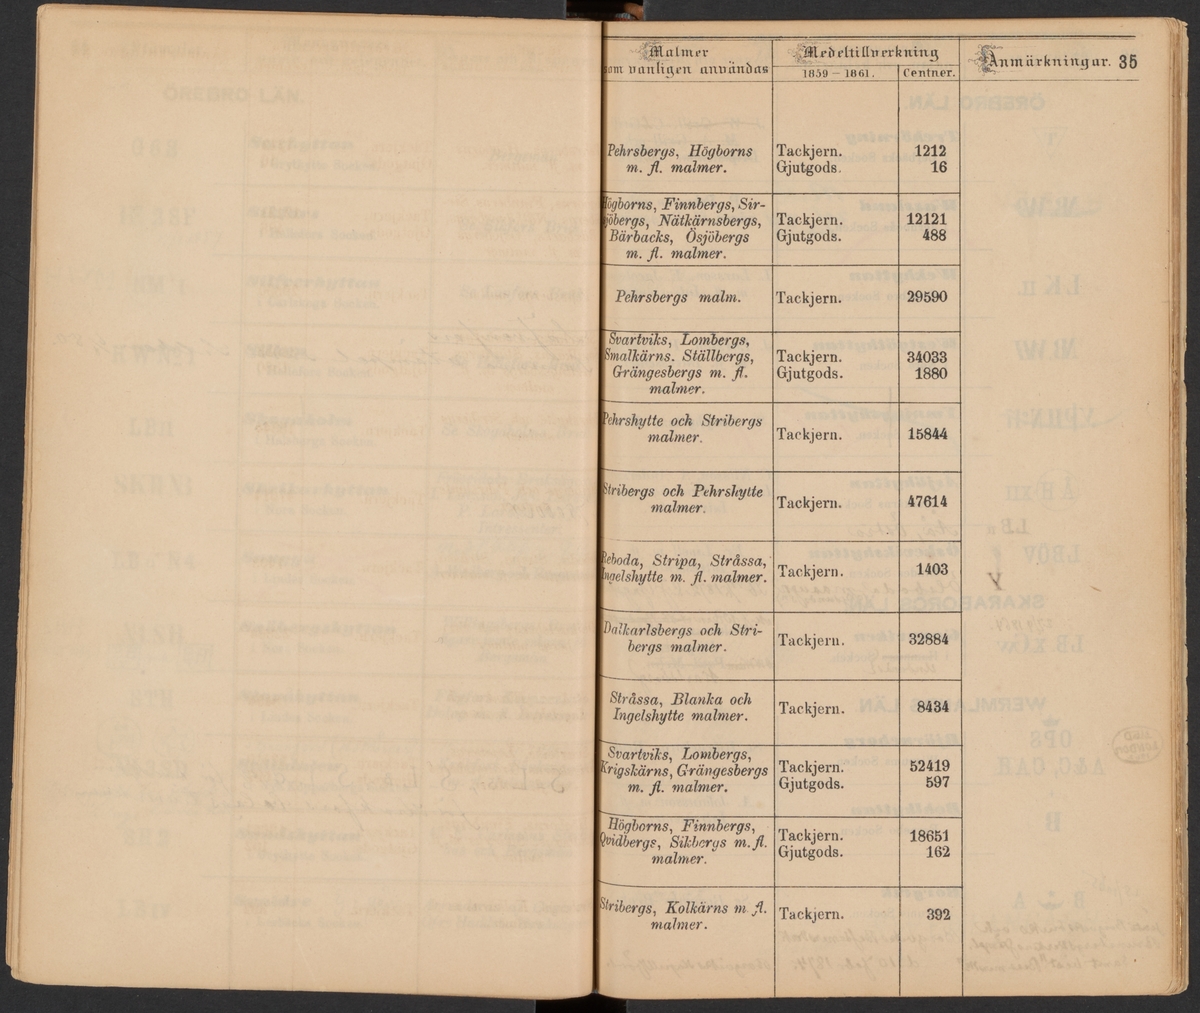 Malmer
som vanligen användas
Medeltillverkning
1859 – 1861. Centner.
Anmärkningar. 35
Pehrsbergs, Högborns
m. fl. malmer.
Tackjern. 1212
Gjutgods. 16
Högborns, Finnbergs, Sir-
sjöbergs, Nätkärnsbergs,
Bärbacks, Ösjöbergs
m. fl. malmer.
Tackjern. 12121
Gjutgods. 488
Pehrsbergs malm. Tackjern. 29590
Svartviks, Lombergs,
Smalkärns. Ställbergs,
Grängesbergs m. fl.
malmer.
Tackjern. 34033
Gjutgods. 1880
Pehrshytte och Stribergs
malmer.
Tackjern. 15844
Stribergs och Pehrshytte
malmer.
Tackjern. 47614
Reboda, Stripa, Stråssa,
Ingelshytte m. fl. malmer.
Tackjern. 1403
Dalkarlsbergs och Stri-
bergs malmer.
Tackjern. 32884
Stråssa, Blanka och
Ingelshytte malmer.
Tackjern. 8434
Svartviks, Lombergs,
Krigskärns, Grängesbergs
m. fl. malmer.
Tackjern. 52419
Gjutgods. 597
Högborns, Finnbergs,
Qvidbergs, Sikbergs m. fl.
malmer.
Tackjern. 18651
Gjutgods. 162
Stribergs, Kolkärns m fl.
malmer.
Tackjern. 392